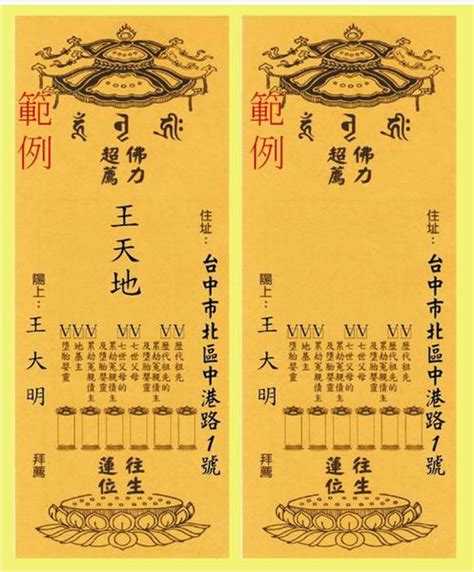 範例
佛力
超薦
住址：台中市北區中港路1號
王天地
歷代祖先的
累劫冤親債主
七世父母
七世父母的
及墮胎嬰靈
累劫冤親債主
地基主
墮胎嬰靈
陽上：王大明 拜薦
往生
蓮位
範例
佛力
超薦
住址：台中市北區中港路1號
歷代祖先的
累劫冤親債主
七世父母
七世父母的
及墮胎嬰靈
累劫冤親債主
地基主
墮胎嬰靈
陽上：王大明 拜薦
往生
蓮位